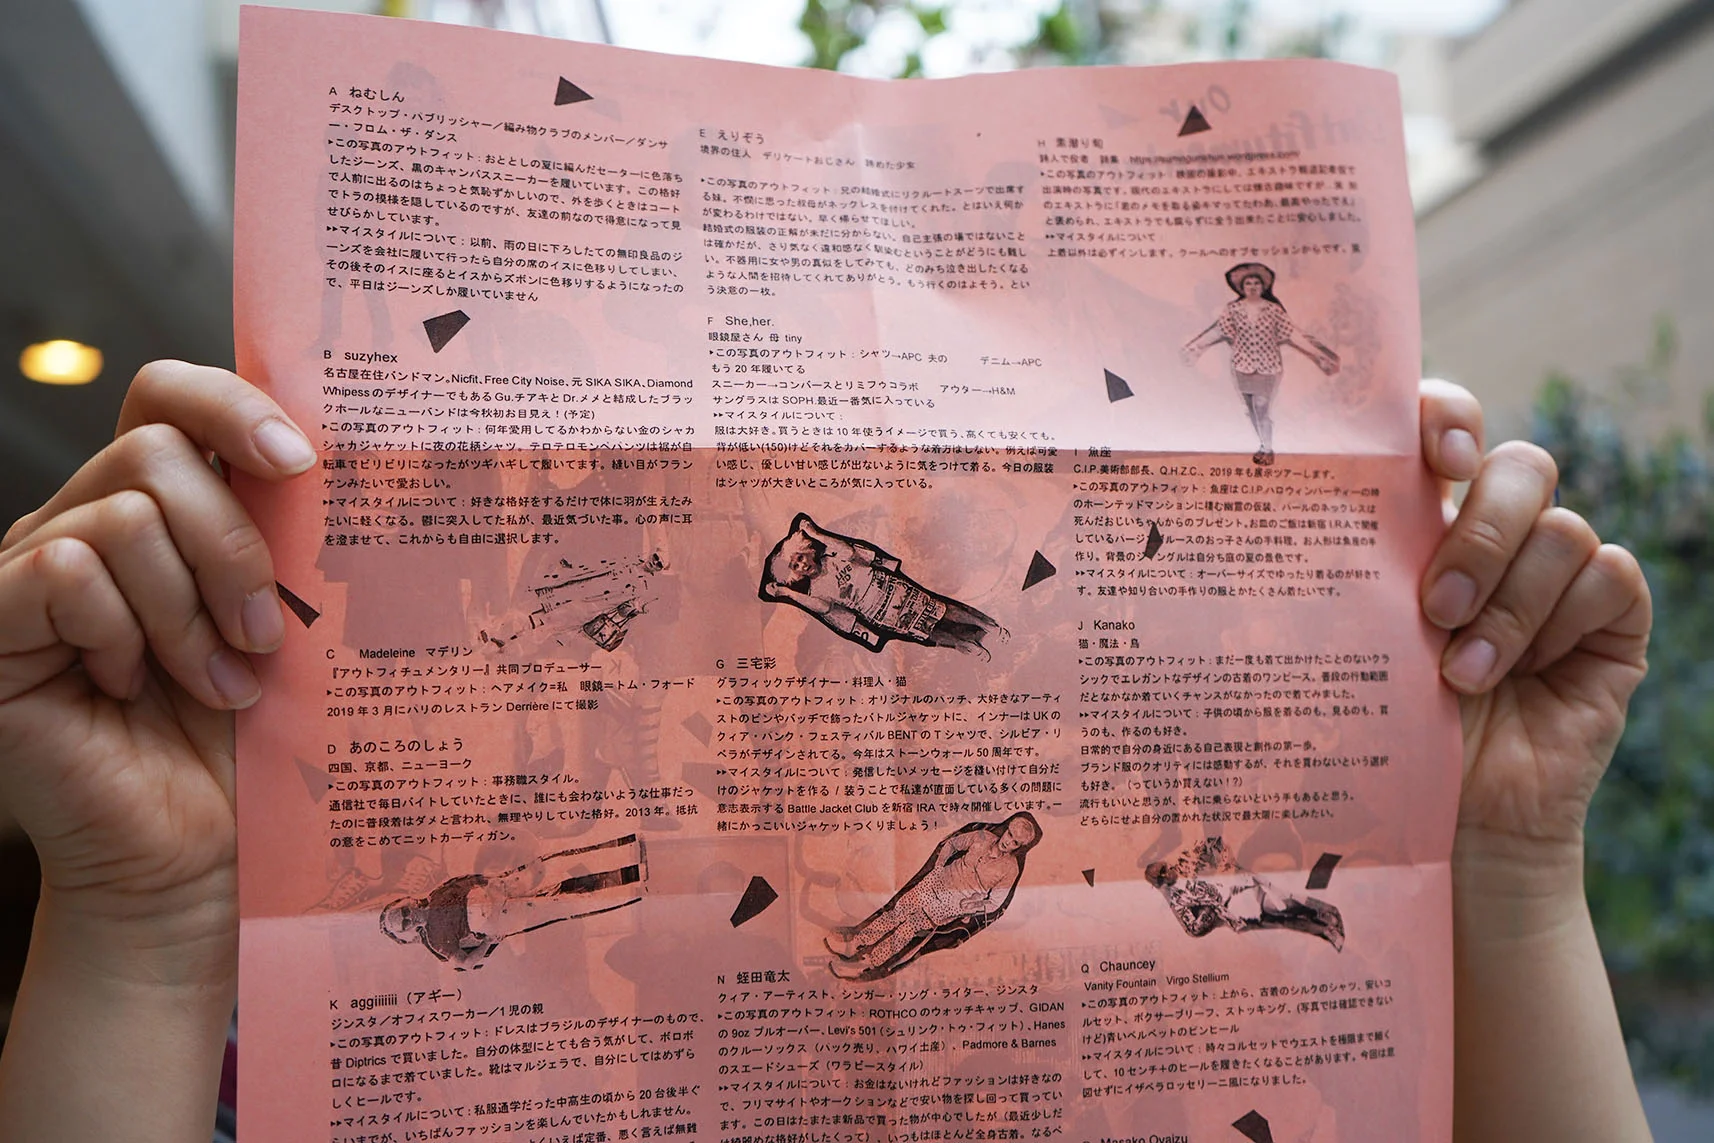 A ねむしん
デスクトップ・パブリッシャー／編み物クラブのメンバー／ダンサ
ー・フロム・ザ・ダンス
▸この写真のアウトフィット：おととしの夏に編んだセーターに色落ち
したジーンズ、黒のキャンバススニーカーを履いています。この格好
で人前に出るのはちょっと気恥ずかしいので、外を歩くときはコート
でトラの模様を隠しているのですが、友達の前なので得意になって見
せびらかしています。
▸▸マイスタイルについて：以前、雨の日に下ろしたての無印良品のジ
ーンズを会社に履いて行ったら自分の席のイスに色移りしてしまい、
その後そのイスに座るとイスからズボンに色移りするようになったの
で、平日はジーンズしか履いていません
B suzyhex
名古屋在住バンドマン。Nicfit、Free City Noise、元 SIKA SIKA、Diamond
Whipess のデザイナーでもある Gu.チアキと Dr.メメと結成したブラッ
クホールなニューバンドは今秋初お目見え！(予定)
▸この写真のアウトフィット：何年愛用してるかわからない金のシャカ
シャカジャケットに夜の花柄シャツ。テロテロモンペパンツは裾が自
転車でビリビリになったがツギハギして履いてます。縫い目がフラン
ケンみたいで愛おしい。
▸▸マイスタイルについて：好きな格好をするだけで体に羽が生えたみ
たいに軽くなる。鬱に突入してた私が、最近気づいた事。心の声に耳
を澄ませて、これからも自由に選択します。
C Madeleine マデリン
『アウトフィチュメンタリー』共同プロデューサー
▸この写真のアウトフィット：ヘアメイク=私 眼鏡＝トム・フォード
2019 年 3 月にパリのレストラン Derrière にて撮影
D あのころのしょう
四国、京都、ニューヨーク
▸この写真のアウトフィット：事務職スタイル。
通信社で毎日バイトしていたときに、誰にも会わないような仕事だっ
たのに普段着はダメと言われ、無理やりしていた格好。2013 年。抵抗
の意をこめてニットカーディガン。
K aggiiiiiii（アギー）
ジンスタ／オフィスワーカー／1 児の親
▸この写真のアウトフィット：ドレスはブラジルのデザイナーのもので、
昔 Diptrics で買いました。自分の体型にとても合う気がして、ボロボ
ロになるまで着ていました。靴はマルジェラで、自分にしてはめずら
しくヒールです。
▸▸マイスタイルについて：私服通学だった中高生の頃から 20 台後半ぐ
らいまでが、いちばんファッションを楽しんでいたかもしれません。
よくいえば定番、悪く言えば無難
E えりぞう
境界の住人 デリケートおじさん 諦めた少女
▸この写真のアウトフィット：兄の結婚式にリクルートスーツで出席す
る妹。不憫に思った叔母がネックレスを付けてくれた。とはいえ何か
が変わるわけではない。早く帰らせてほしい。
結婚式の服装の正解が未だに分からない。自己主張の場ではないこと
は確かだが、さり気なく違和感なく馴染むということがどうにも難し
い。不器用に女や男の真似をしてみても、どのみち泣き出したくなる
ような人間を招待してくれてありがとう。もう行くのはよそう。とい
う決意の一枚。
F She,her.
眼鏡屋さん 母 tiny
▸この写真のアウトフィット：シャツ→APC 夫の デニム→APC
もう 20 年履いてる
スニーカー→コンバースとリミフウコラボ アウター→H&M
サングラスは SOPH.最近一番気に入っている
▸▸マイスタイルについて：
服は大好き。買うときは 10 年使うイメージで買う、高くても安くても。
背が低い(150)けどそれをカバーするような着方はしない。例えば可愛
い感じ、優しい甘い感じが出ないように気をつけて着る。今日の服装
はシャツが大きいところが気に入っている。
G 三宅彩
グラフィックデザイナー・料理人・猫
▸この写真のアウトフィット：オリジナルのパッチ、大好きなアーティ
ストのピンやバッチで飾ったバトルジャケットに、インナーは UK の
クィア・パンク・フェスティバル BENT の T シャツで、シルビア・リ
ベラがデザインされてる。今年はストーンウォール 50 周年です。
▸▸マイスタイルについて：発信したいメッセージを縫い付けて自分だ
けのジャケットを作る / 装うことで私達が直面している多くの問題に
意志表示する Battle Jacket Club を新宿 IRA で時々開催しています。一
緒にかっこいいジャケットつくりましょう！
N 蛭田竜太
クィア・アーティスト、シンガー・ソング・ライター、ジンスタ
▸この写真のアウトフィット：ROTHCO のウォッチキャップ、GIDAN
の 9oz プルオーバー、Levi's 501（シュリンク・トゥ・フィット）、Hanes
のクルーソックス（パック売り、ハワイ土産）、Padmore & Barnes
のスエードシューズ（ワラビースタイル）
▸▸マイスタイルについて：お金はないけれどファッションは好きなの
で、フリマサイトやオークションなどで安い物を探し回って買ってい
ます。この日はたまたま新品で買った物が中心でしたが（最近少しだ
け綺麗めな格好がしたくって）、いつもはほとんど全身古着。なるべ
H 素潜り旬
詩人で役者 詩集 https://sumogurishun.wordpress.com/
▸この写真のアウトフィット：映画の撮影中、エキストラ報道記者役で
出演時の写真です。現代のエキストラにしては懐古趣味ですが…
のエキストラに「君のメモを取る姿キマってたわあ、最高やったでえ」
と褒められ、エキストラでも腐らずに全う出来たことに安心しました。
▸▸マイスタイルについて
上着以外は必ずインします。クールへのオブセッションからです。
I 魚座
C.I.P.美術部部長、Q.H.Z.C.、2019 年も展示ツアーします。
▸この写真のアウトフィット：魚座は C.I.P.ハロウィンパーティーの時
のホーンテッドマンションに棲む幽霊の仮装、パールのネックレスは
死んだおじいちゃんからのプレゼント。お皿のご飯は新宿 I.R.A で開催
しているバージンブルースのおっ子さんの手料理。お人形は魚座の手
作り。背景のジャングルは自分ち庭の夏の景色です。
▸▸マイスタイルについて：オーバーサイズでゆったり着るのが好きで
す。友達や知り合いの手作りの服とかたくさん着たいです。
J Kanako
猫・魔法・鳥
▸この写真のアウトフィット：まだ一度も着て出かけたことのないクラ
シックでエレガントなデザインの古着のワンピース。普段の行動範囲
だとなかなか着ていくチャンスがなかったので着てみました。
▸▸マイスタイルについて：子供の頃から服を着るのも、見るのも、買
うのも、作るのも好き。
日常的で自分の身近にある自己表現と創作の第一歩。
ブランド服のクオリティには感動するが、それを買わないという選択
も好き。（っていうか買えない！?）
流行もいいと思うが、それに乗らないという手もあると思う。
どちらにせよ自分の置かれた状況で最大限に楽しみたい。
Q Chauncey
Vanity Fountain Virgo Stellium
▸この写真のアウトフィット：上から、古着のシルクのシャツ、安いコ
ルセット、ボクサーブリーフ、ストッキング、(写真では確認できない
けど)青いベルベットのピンヒール
▸▸マイスタイルについて：時々コルセットでウエストを極限まで細く
して、10 センチ+のヒールを履きたくなることがあります。今回は意
図せずにイザベラロッセリーニ風になりました。
Masako Oyaizu